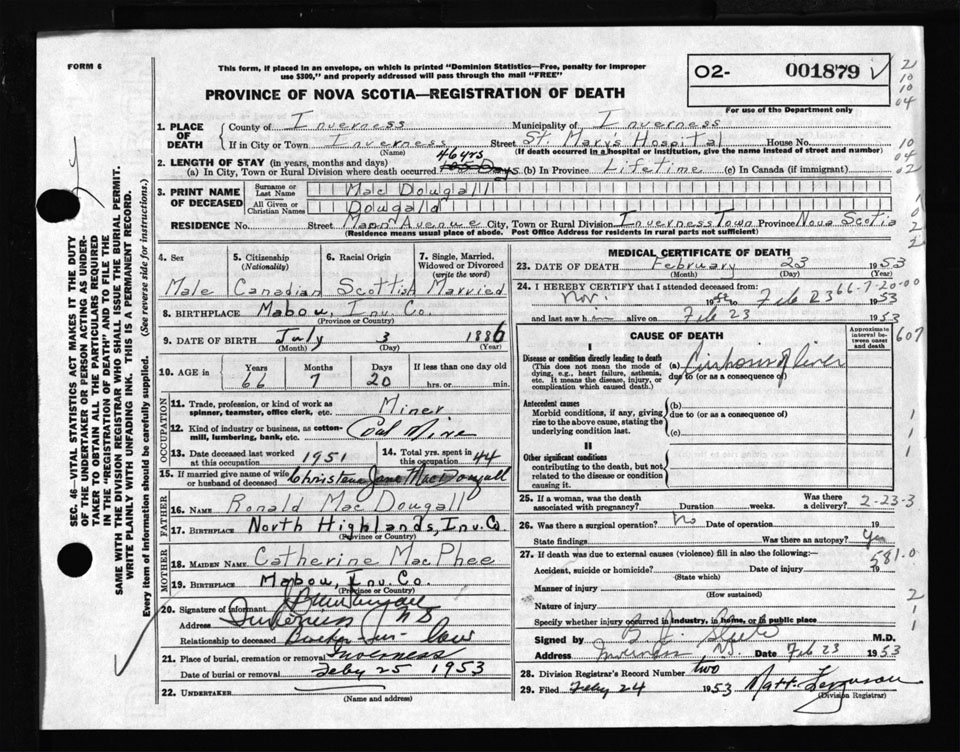 FORM 6
This form, if placed in an envelope, on which is printed "Dominion Statistics—Free, penalty for improper
use $300," and properly addressed will pass through the mail "FREE"
02- 001879
For use of the Department only
PROVINCE OF NOVA SCOTIA—REGISTRATION OF DEATH
2
10
04
10
04
02
1. PLACE OF DEATH
County of Inverness Municipality of Inverness
If in City or Town Inverness Street St. Marys Hospital House No.
(Name) (If death occurred in a hospital or institution, give the name instead of street and number)
2. LENGTH OF STAY (in years, months and days)
46 yrs
(a) In City, Town or Rural Division where death occurred Days (b) In Province Lifetime (c) In Canada (if immigrant)
3. PRINT NAME OF DECEASED
Surname or Last Name MacDougall
All Given or Christian Names Dougald
RESIDENCE No. Street Mann Avenue City, Town or Rural Division Inverness Town Province Nova Scotia
(Residence means usual place of abode. Post Office Address for residents in rural parts not sufficient)
4. Sex
Male
5. Citizenship
(Nationality)
Canadian
6. Racial Origin
Scottish
7. Single, Married,
Widowed or Divorced
(write the word)
Married
8. BIRTHPLACE Mabou, Inv. Co.
(Province or Country)
9. DATE OF BIRTH July 3 1886
(Month) (Day) (Year)
10. AGE in Years Months Days If less than one day old
66 7 20 hrs. or min.
OCCUPATION
11. Trade, profession, or kind of work as
spinner, teamster, office clerk, etc. Miner
12. Kind of industry or business, as cotton-
mill, lumbering, bank, etc. Coal Mine
13. Date deceased last worked
at this occupation 1951
14. Total yrs. spent in
this occupation 44
15. If married give name of wife
or husband of deceased Christena Jane MacDougall
FATHER
16. Name Ronald MacDougall
17. BIRTHPLACE North Highlands, Inv. Co.
(Province or Country)
MOTHER
18. MAIDEN NAME Catherine MacPhee
19. BIRTHPLACE Mabou, Inv. Co.
(Province or Country)
20. Signature of informant
Address Inverness NS
Relationship to deceased in-law
21. Place of burial, cremation or removal Inverness
Date of burial or removal Feby 25 1953
22. UNDERTAKER
(Name and address)
MEDICAL CERTIFICATE OF DEATH
23. DATE OF DEATH February 23 1953
(Month) (Day) (Year)
66-7-20-00
24. I HEREBY CERTIFY that I attended deceased from:
Nov. 1952 to Feb 23 1953
and last saw him alive on Feb 23 1953
607
CAUSE OF DEATH
Approximate
interval between
onset and death
I
Disease or condition directly leading to death
(This does not mean the mode of
dying, e.g., heart failure, asthenia,
etc. It means the disease, injury, or
complication which caused death.)
(a) Cirrhosis of liver
due to (or as a consequence of)
Antecedent causes
Morbid conditions, if any, giving
rise to the above cause, stating the
underlying condition last.
(b)
due to (or as a consequence of)
(c)
II
Other significant conditions
contributing to the death, but not
related to the disease or condition
causing it.
25. If a woman, was the death
associated with pregnancy? Duration weeks. Was there
a delivery? 2-23-3
26. Was there surgical operation? No Date of operation 19
State findings Was there an autopsy? Yes
581.0
27. If death was due to external causes (violence) fill in also the following:—
Accident, suicide or homicide? Date of injury 19
(State which)
Manner of injury
(How sustained)
Nature of injury
Specify whether injury occurred in industry, in home, or in public place
Signed by M.D.
Address Inverness N.S. Date Feb 23 1953
28. Division Registrar's Record Number two
29. Filed Feby 24 1953 Matt. Ferguson
(Division Registrar)
SEC. 46—VITAL STATISTICS ACT MAKES IT THE DUTY
OF THE UNDERTAKER OR PERSON ACTING AS UNDER-
TAKER TO OBTAIN ALL THE PARTICULARS REQUIRED
IN THE "REGISTRATION OF DEATH" AND TO FILE THE
SAME WITH THE DIVISION REGISTRAR WHO SHALL ISSUE THE BURIAL PERMIT.
WRITE PLAINLY WITH UNFADING INK. THIS IS A PERMANENT RECORD.
Every item of information should be carefully supplied. (See reverse side for instructions.)